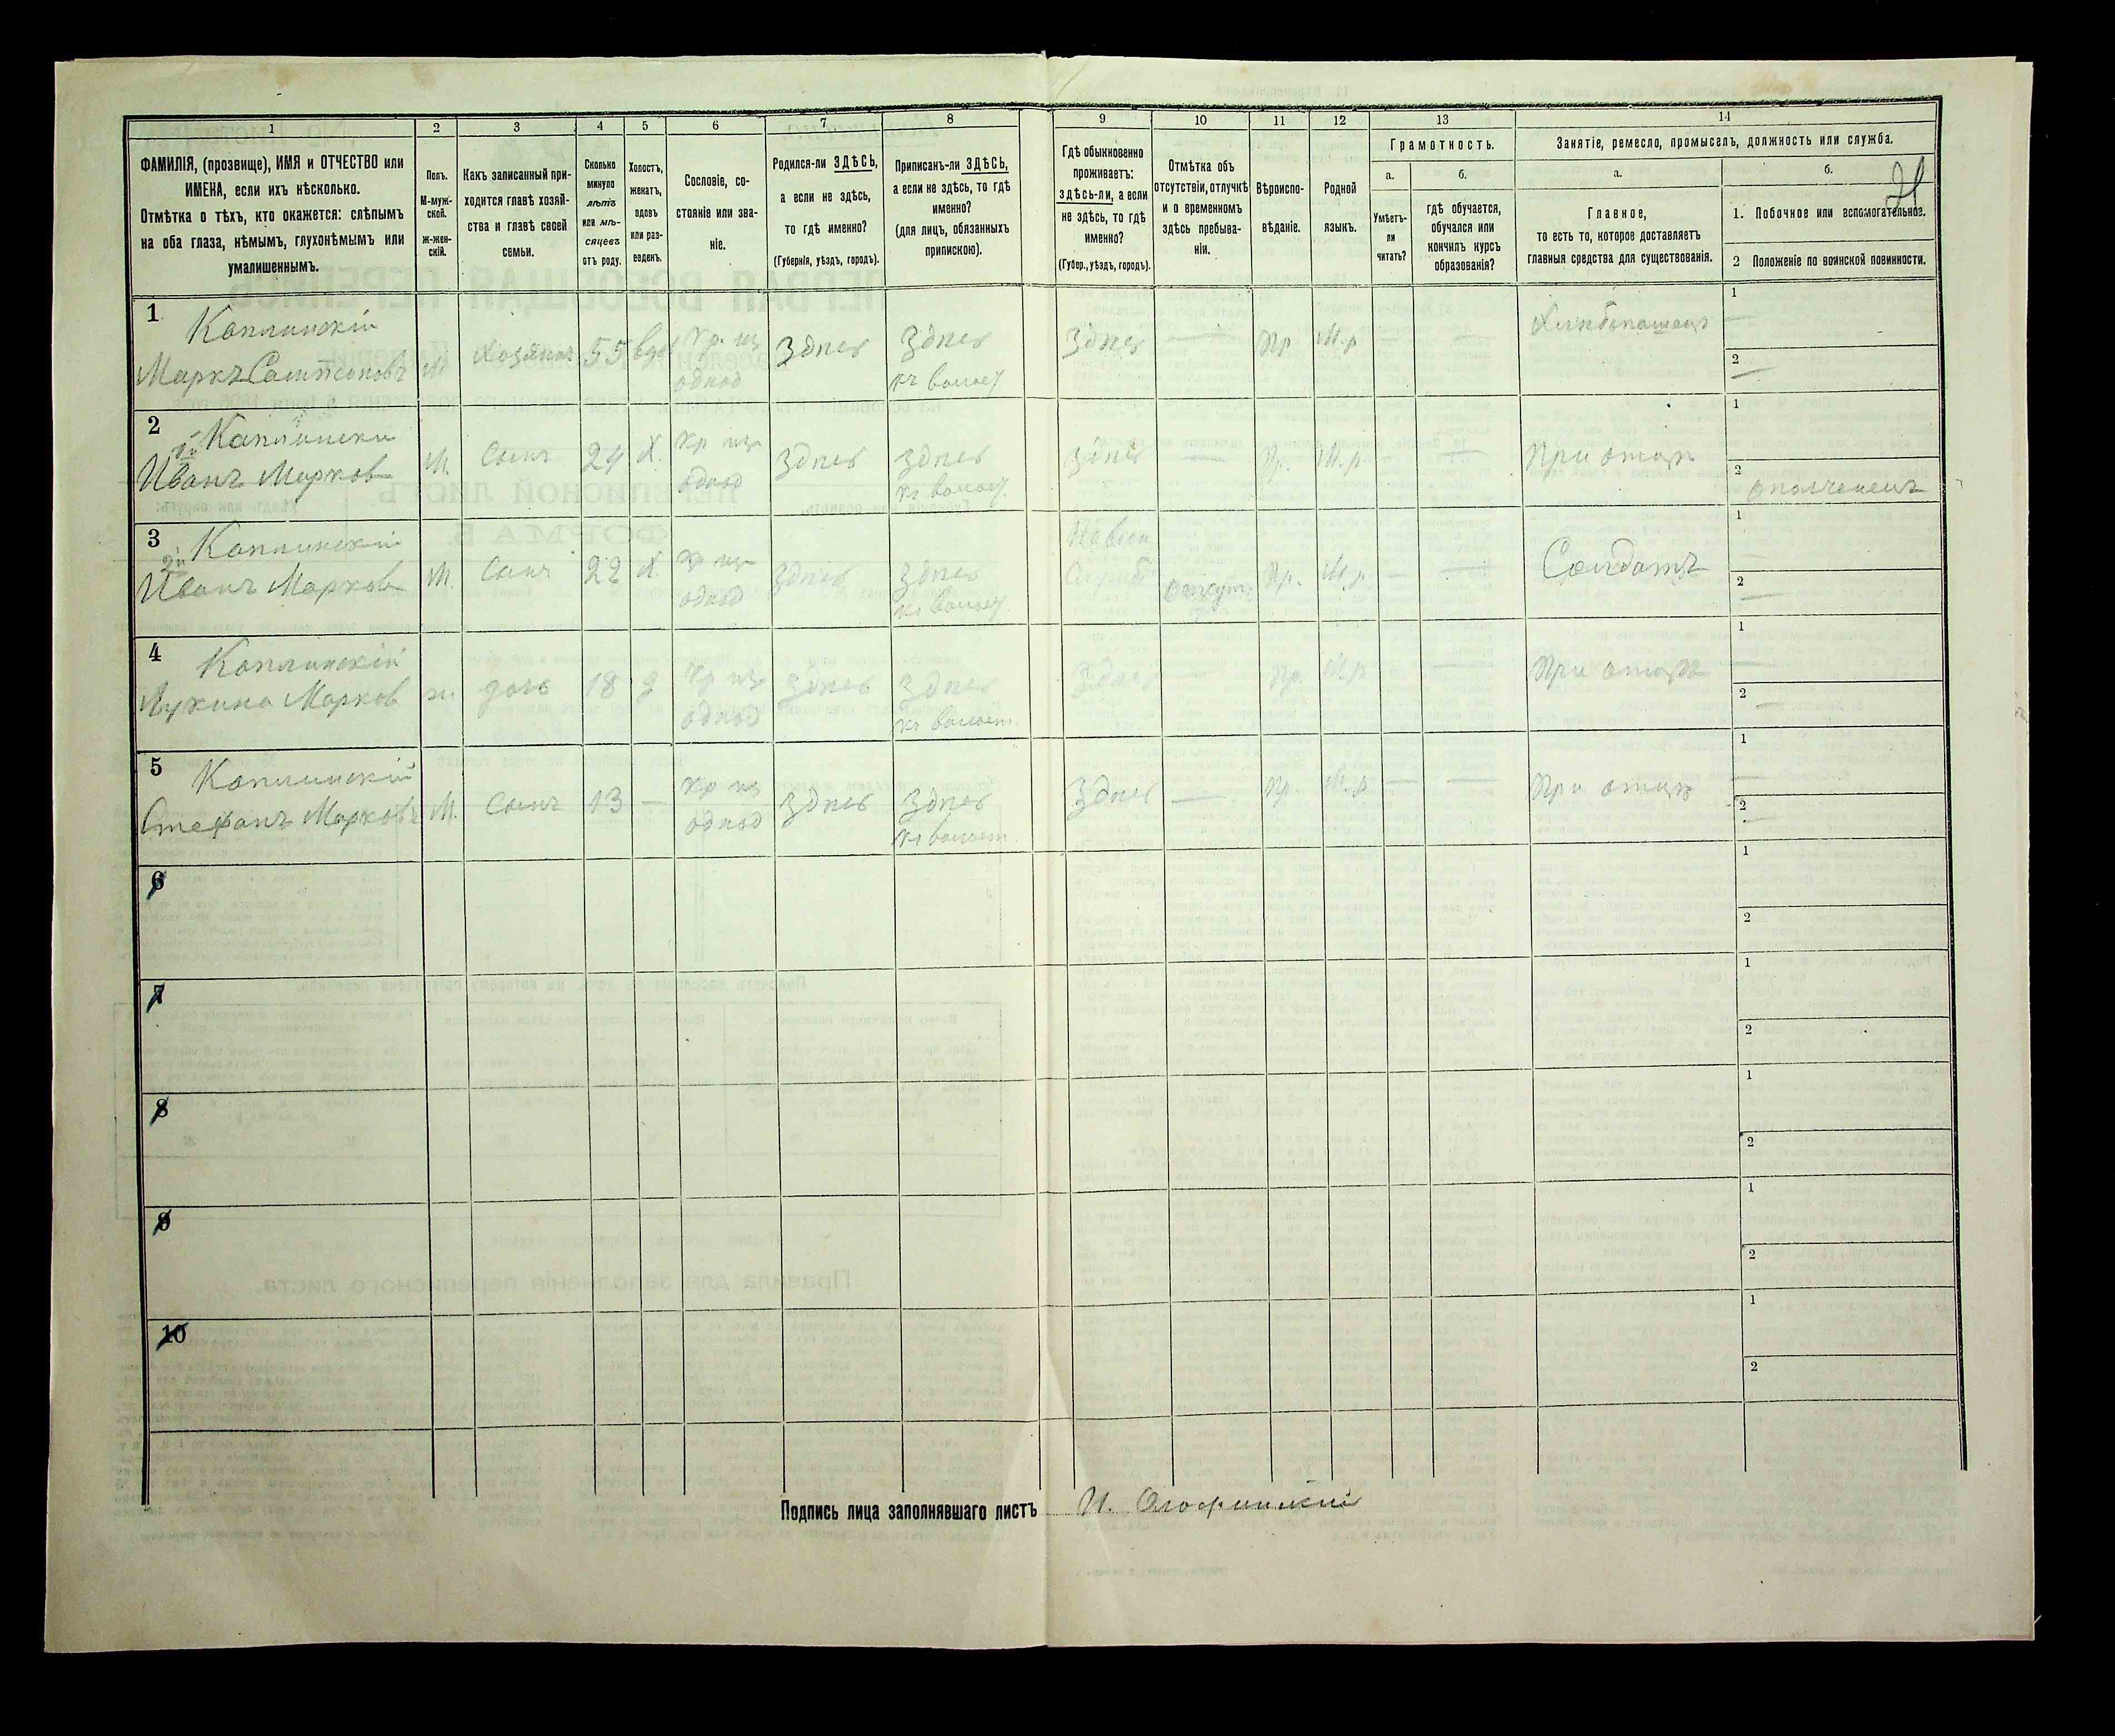 1 2 3 4 5 6 7 8 9 10 11 12 13 14
ФАМИЛІЯ, (прозвище), ИМЯ и ОТЧЕСТВО или
ИМЕНА, если ихъ нѣсколько.
Отмѣтка о тѣхъ, кто окажется: слѣпымъ
на оба глаза, нѣмымъ, глухонѣмымъ или
умалишеннымъ.
Полъ.
М-муж-
ской.
ж-жен-
скій.
Какъ записанный при-
ходится главѣ хозяй-
ства и главѣ своей
семьи.
Сколько
минуло
лѣтъ
или мѣ-
сяцевъ
отъ роду.
Холостъ,
женатъ,
вдовъ
или раз-
веденъ.
Сословіе, со-
стояніе или зва-
ніе.
Родился-ли ЗДѢСЬ,
а если не здѣсь,
то гдѣ именно?
(Губернія, уѣздъ, городъ).
Приписанъ-ли ЗДѢСЬ,
а если не здѣсь, то гдѣ
именно?
(для лицъ, обязанныхъ
припискою).
Гдѣ обыкновенно
проживаетъ:
здѣсь-ли, а если
не здѣсь, то гдѣ
именно?
(Губер., уѣздъ, городъ).
Отмѣтка объ
отсутствіи, отлучкѣ
и о временномъ
здѣсь пребыва-
ніи.
Вѣроиспо-
вѣданіе.
Родной
языкъ.
Грамотность.
а.
Умѣетъ-
ли
читать?
б.
гдѣ обучается,
обучался или
кончилъ курсъ
образованія?
Занятіе, ремесло, промыселъ, должность или служба.
а.
Главное,
то есть то, которое доставляетъ
главныя средства для существованія.
б.
1. Побочное или вспомогательное.
2 Положеніе по воинской повинности.
1 Каплинскій Хозяинъ 55 вдо Кр. из Здѣсь Здѣсь Здѣсь — Пр М.р — — Хлѣбопашецъ 1 —
Маркъ Сампсоновъ М однод къ волост 2 —
2 Каплински М. Сынъ 24 Х. Кр из Здѣсь Здѣсь Здѣсь — Пр. М.р - — При отцѣ 1
1й Иванъ Марков однод къ волост 2 ополченецъ
3 Каплинскій М. Сынъ 22 Х. Кр из Здѣсь Здѣсь Пр. М.р — — Солдатъ 1 —
2й Иванъ Марков однод къ волост Служб отсут 2 —
4 Каплинскій ж дочь 18 д Кр из Здѣсь Здѣсь Здѣсь — Пр. М.р - — При отцѣ 1 —
Лукина Марков однод къ волост. 2 —
5 Каплинскій М. Сынъ 13 — Кр из Здѣсь Здѣсь Здѣсь — Пр. М.р — — При отцѣ 1 —
Стефанъ Марковъ однод къ волост. 2 —
6 1
2
7 1
2
8 1
2
9 1
2
10 1
2
Подпись лица заполнявшаго листъ И.